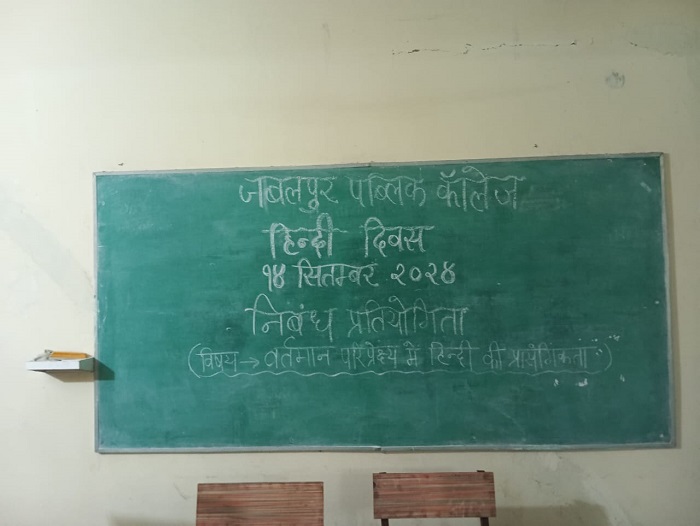 जबलपुर पब्लिक कॉलेज
हिन्दी दिवस
१४ सितम्बर २०२४
निबंध प्रतियोगिता
(विषय → वर्तमान परिप्रेक्ष्य में हिन्दी की प्रासंगिकता)